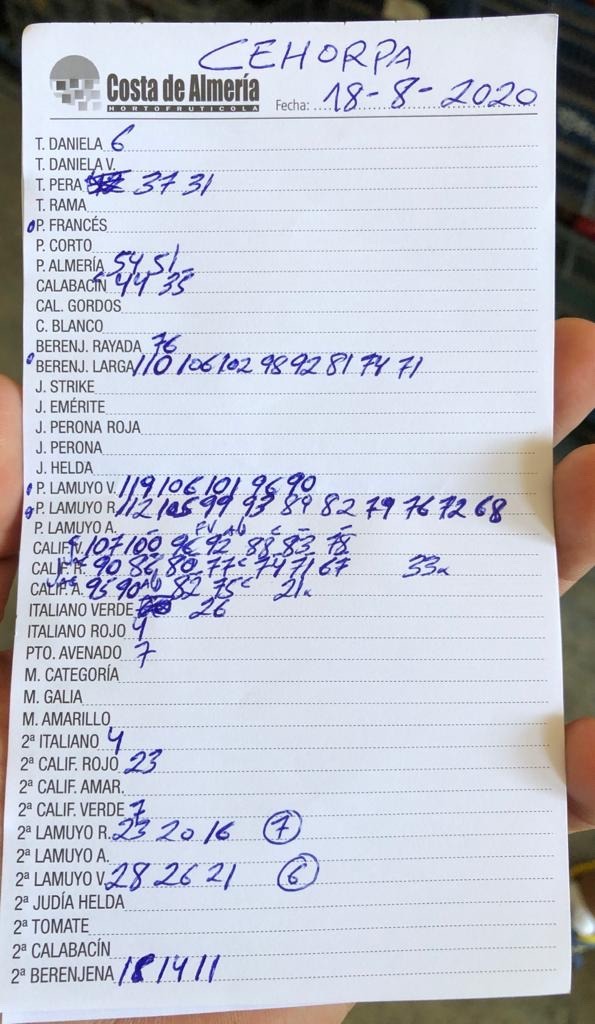 CEHORPA
Costa de Almería
HORTOFRUTICOLA
Fecha: 18-8-2020
T. DANIELA 6
T. DANIELA V.
T. PERA 37 31
T. RAMA
P. FRANCÉS
P. CORTO
P. ALMERÍA 54 51
CALABACÍN 44 35
CAL. GORDOS
C. BLANCO
BERENJ. RAYADA 76
BERENJ. LARGA 110 106 102 98 92 81 74 71
J. STRIKE
J. EMÉRITE
J. PERONA ROJA
J. PERONA
J. HELDA
P. LAMUYO V. 119 106 101 96 90
P. LAMUYO R. 112 105 99 93 89 82 79 76 72 68
P. LAMUYO A.
CALIF. V. 107 100 96 92 88 83 78
CALIF. R. 90 86 80 77 74 71 67 33
CALIF. A. 95 90 82 75 21
ITALIANO VERDE 26
ITALIANO ROJO 4
PTO. AVENADO 7
M. CATEGORÍA
M. GALIA
M. AMARILLO
2ª ITALIANO 4
2ª CALIF. ROJO 23
2ª CALIF. AMAR.
2ª CALIF. VERDE 7
2ª LAMUYO R. 23 20 16 7
2ª LAMUYO A.
2ª LAMUYO V. 28 26 21 6
2ª JUDÍA HELDA
2ª TOMATE
2ª CALABACÍN
2ª BERENJENA 18 14 11